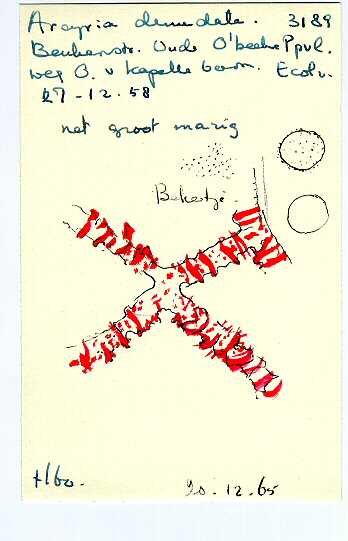 Arcyria denudata. 3189
Beukenstr. Oude O'beeke Ppvl.
weg O. v kapelle boom. Ecolv.
27-12.58
net groot mazig
Bekertje.
+160.
20.12.65